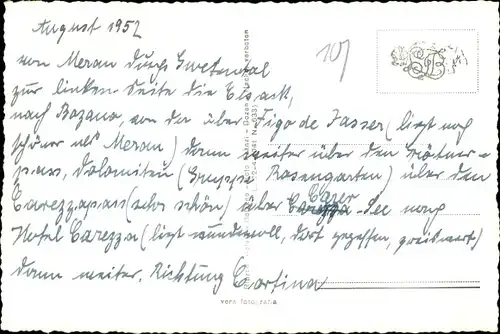 August 1952
107
von Meran durch
zur linken Seite die Eisack,
nach Bozano, von da über Vigo de Fasser (liegt noch
schöner als Meran) dann weiter über den
pass, Dolomiten (Gruppe Rosengarten) über den
Carezzapass (sehr schön) über Carer See nach
Hotel Carezza (liegt wundervoll, dort gegessen, preiswert)
dann weiter. Richtung Cortina
vera fotografia